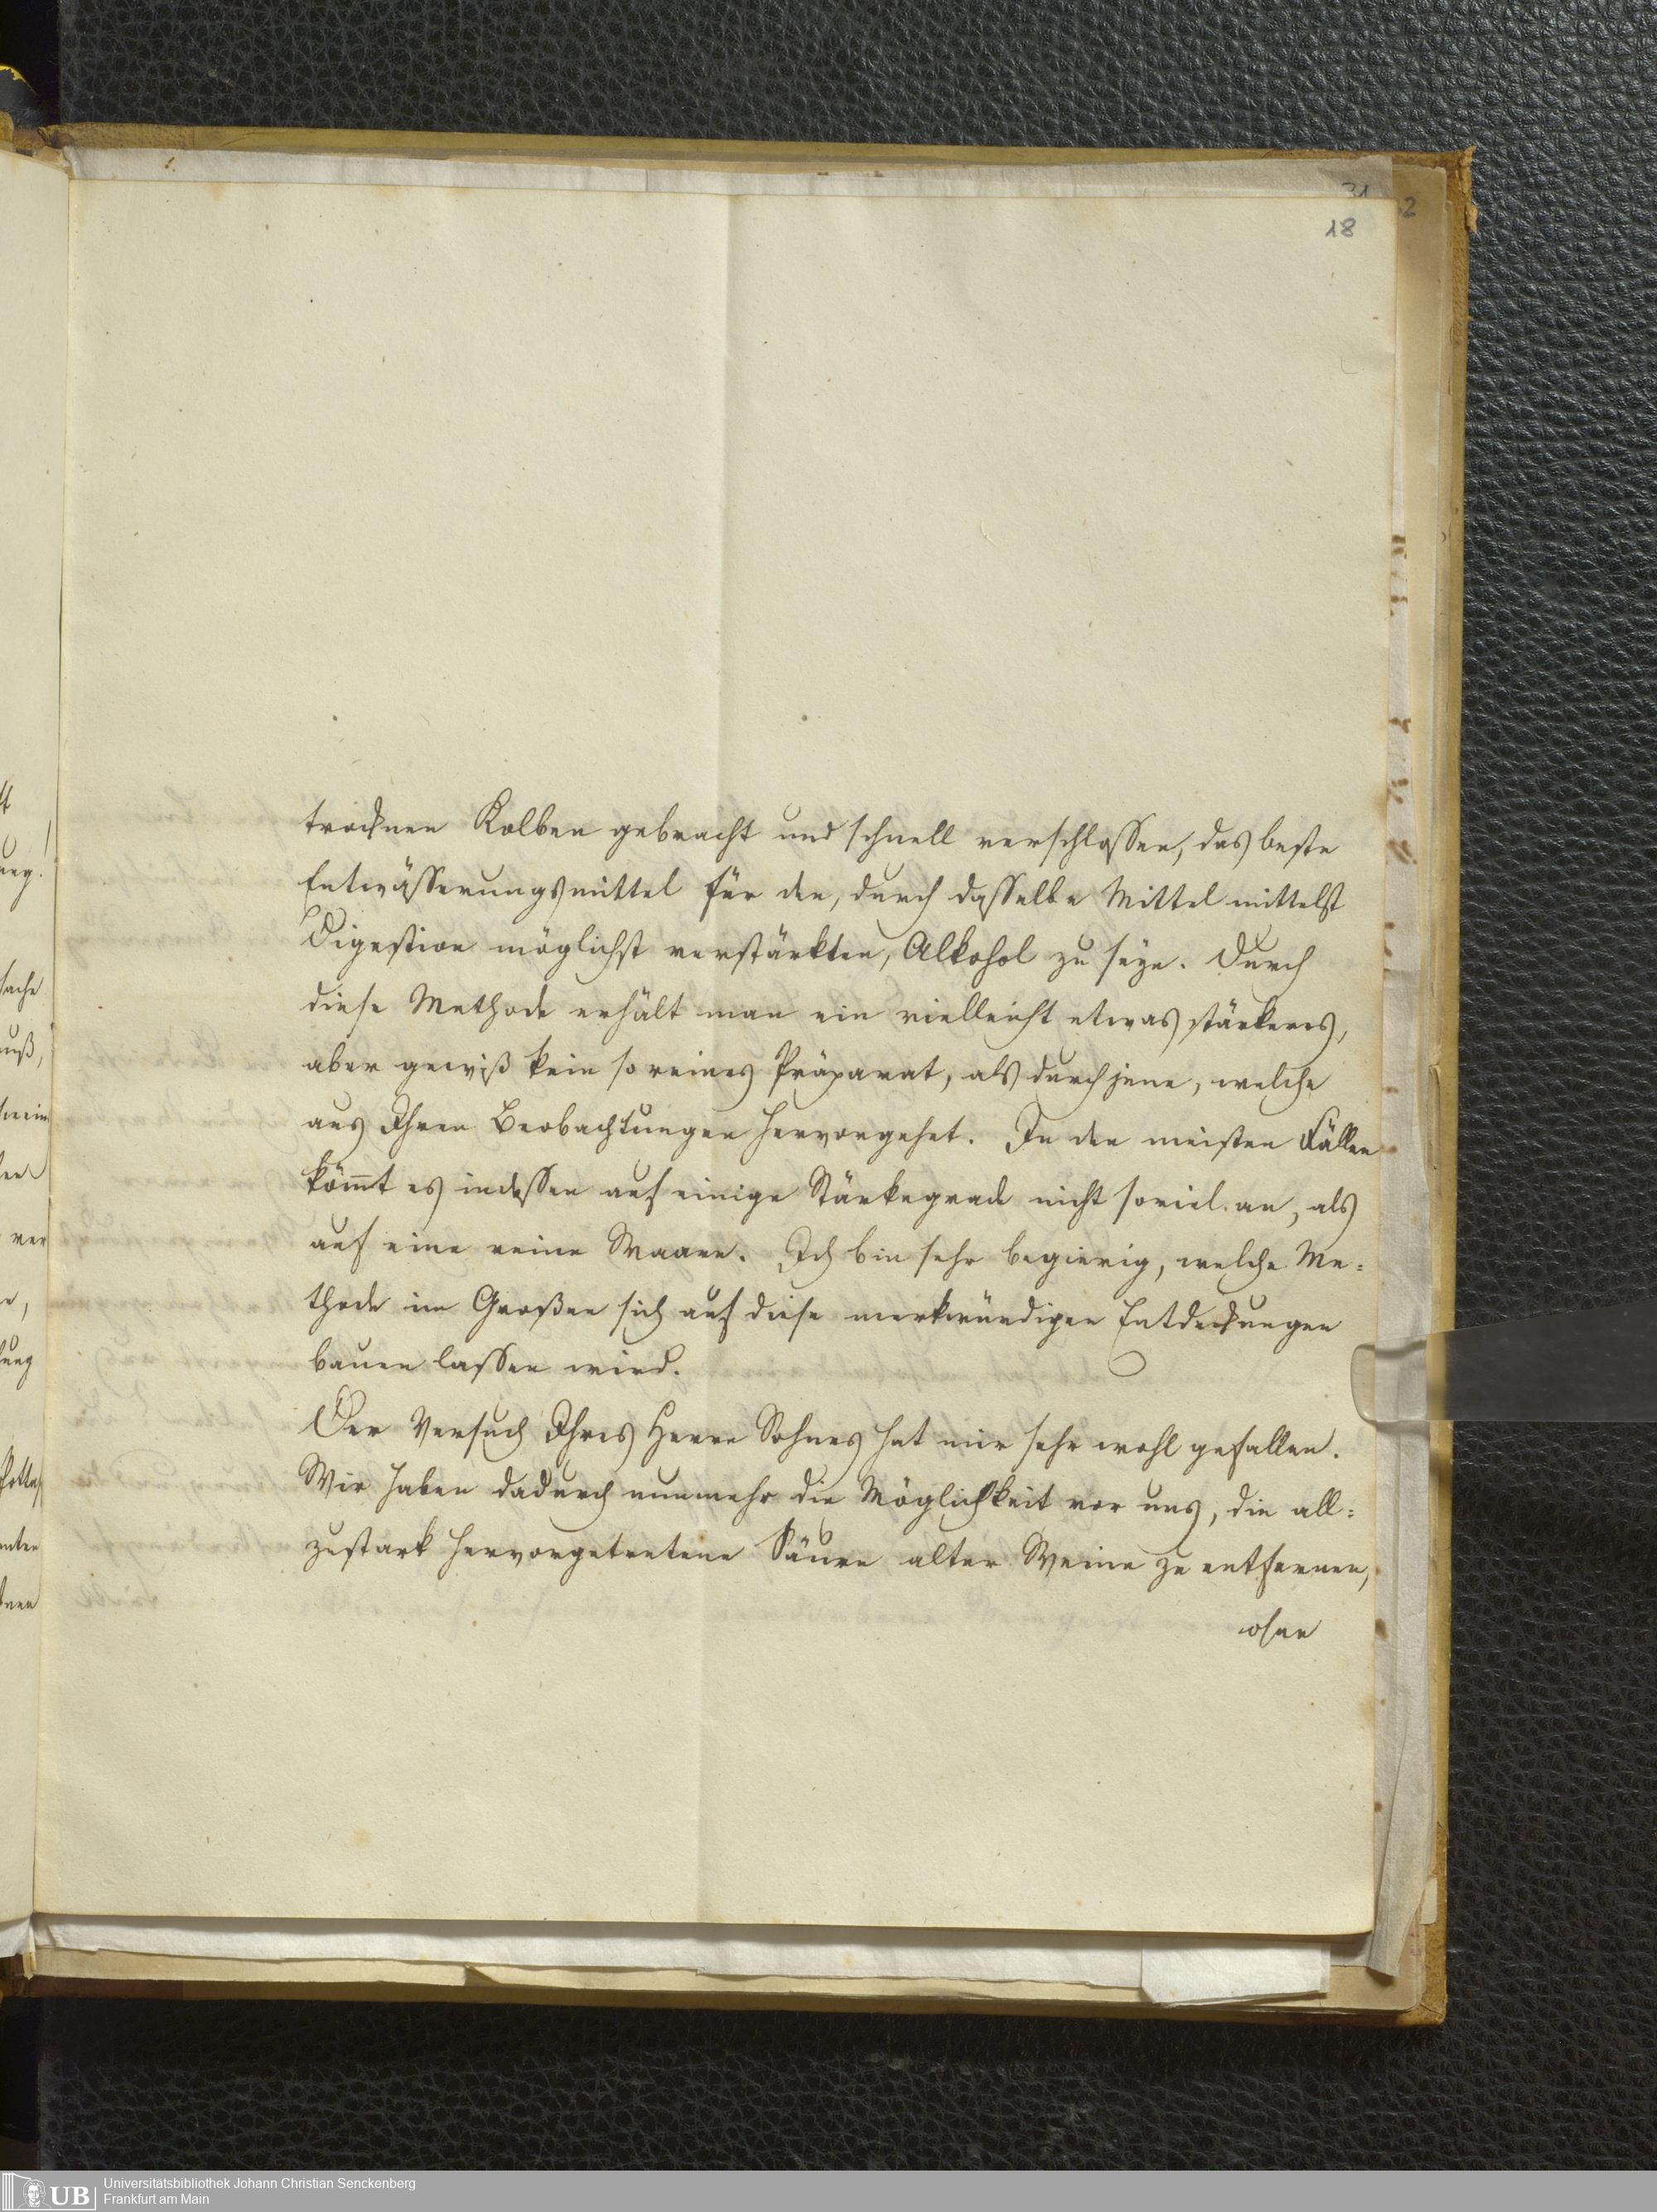 31
32
18
trocknen Kolben gebracht und schnell verschlossen, das beste
Entwässerungsmittel für den, durch dasselbe Mittel mittelst
Digestion möglichst verstärkten, Alkohol zu seyn. Durch
diese Methode erhält man ein vielleicht etwas stärkeres,
aber gewiß kein so reines Präparat, als durch jene, welche
aus Ihren Beobachtungen hervorgehet. In den meisten Fällen
kömmt es indessen auf einige Stärkegrade nicht soviel an, als
auf eine reine Waare. Ich bin sehr begierig, welche Me=
thode im Großen sich auf diese merkwürdigen Entdeckungen
bauen lassen wird.
Der Versuch Ihres Herrn Sohnes hat mir sehr wohl gefallen.
Wir haben dadurch nunmehr die Möglichkeit vor uns, die all=
zustark hervorgetretene Säure alter Weine zu entfernen,
ohne
UB Universitätsbibliothek Johann Christian Senckenberg
Frankfurt am Main